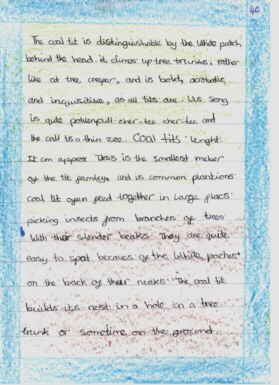 40
The coal tit is distinguishable by the White patch
behind the head. it climbs up tree trunks, rather
like at tree creper, and is bold, acrobatic
and inquisitive, as all tits are. His song
is quite cher-tee cher-tee and
the call is a thin zee. Coal tits lenght:
11 cm approx This is the smallest member
of the tit familey and is common plantions
coal tit often feed together in large placs
picking insects from branches of trees
With their slender beaks. They are quite
easy to spot because of the White patches
on the back of their neaks. The coal tit
builds its nest in a hole in a tree
trunk or sometime on the ground.